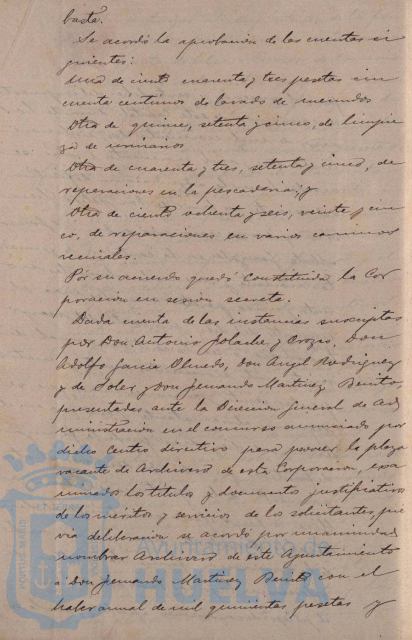 basta.
Se acordó la aprobación de las cuentas si
guientes:
Una de ciento cuarenta y tres pesetas cin
cuenta céntimos de lavado de menudos
Otra de quince, setenta y cinco, de limpie
za de urinarios
Otra de cuarenta y tres, setenta y cinco, de
reparaciones en la pescadería; y
Otra de ciento ochenta y seis, veinte y cin
co, de reparaciones en varios caminos
vecinales.
Por su acuerdo quedó constituida la Cor
poración en sesión secreta.
Dada cuenta de las instancias suscriptas
por Don Antonio y Orozco, Don
Adolfo García Olmedo, Don Angel Rodriguez
y de Soler y Don Fernando Martinez Benito,
presentadas ante la Dirección General de Ad
ministración en el concurso anunciado por
dicho Centro directivo para proveer la plaza
vacante de Archivero de esta Corporación, exa
minados los títulos y documentos justificativos
de los méritos y servicios de los solicitantes, pre
via deliberación se acordó por unanimidad
nombrar Archivero de este Ayuntamiento
á Don Fernando Martinez Benito con el
haber anual de mil quinientas pesetas y
HUELVA